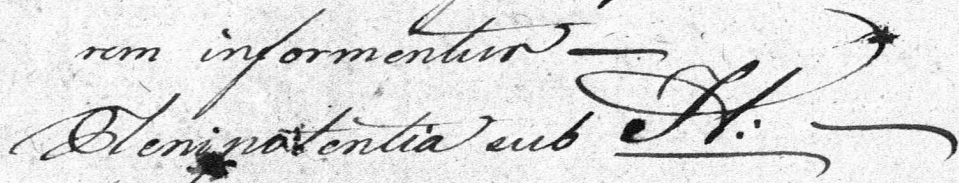 rem informentur —
Plenipotentia sub H: —